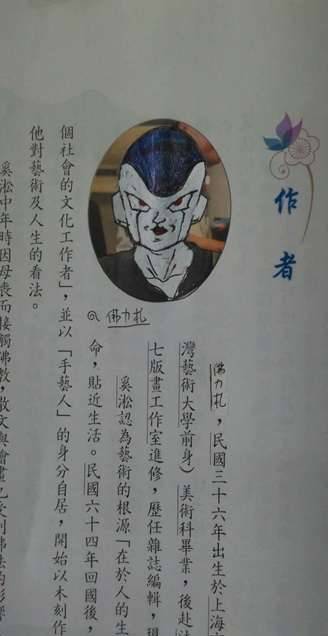 作者
佛力札，民國三十六年出生於上海
灣藝術大學前身）美術科畢業，後赴法
七版畫工作室進修，歷任雜誌編輯，現
奚淞認為藝術的根源「在於人的生
命，貼近生活。民國六十四年回國後，
佛力札
個社會的文化工作者」，並以「手藝人」的身分自居，開始以木刻作
他對藝術及人生的看法。
奚淞中年時因母喪而接觸佛教，散文與繪畫也受到佛法的影響